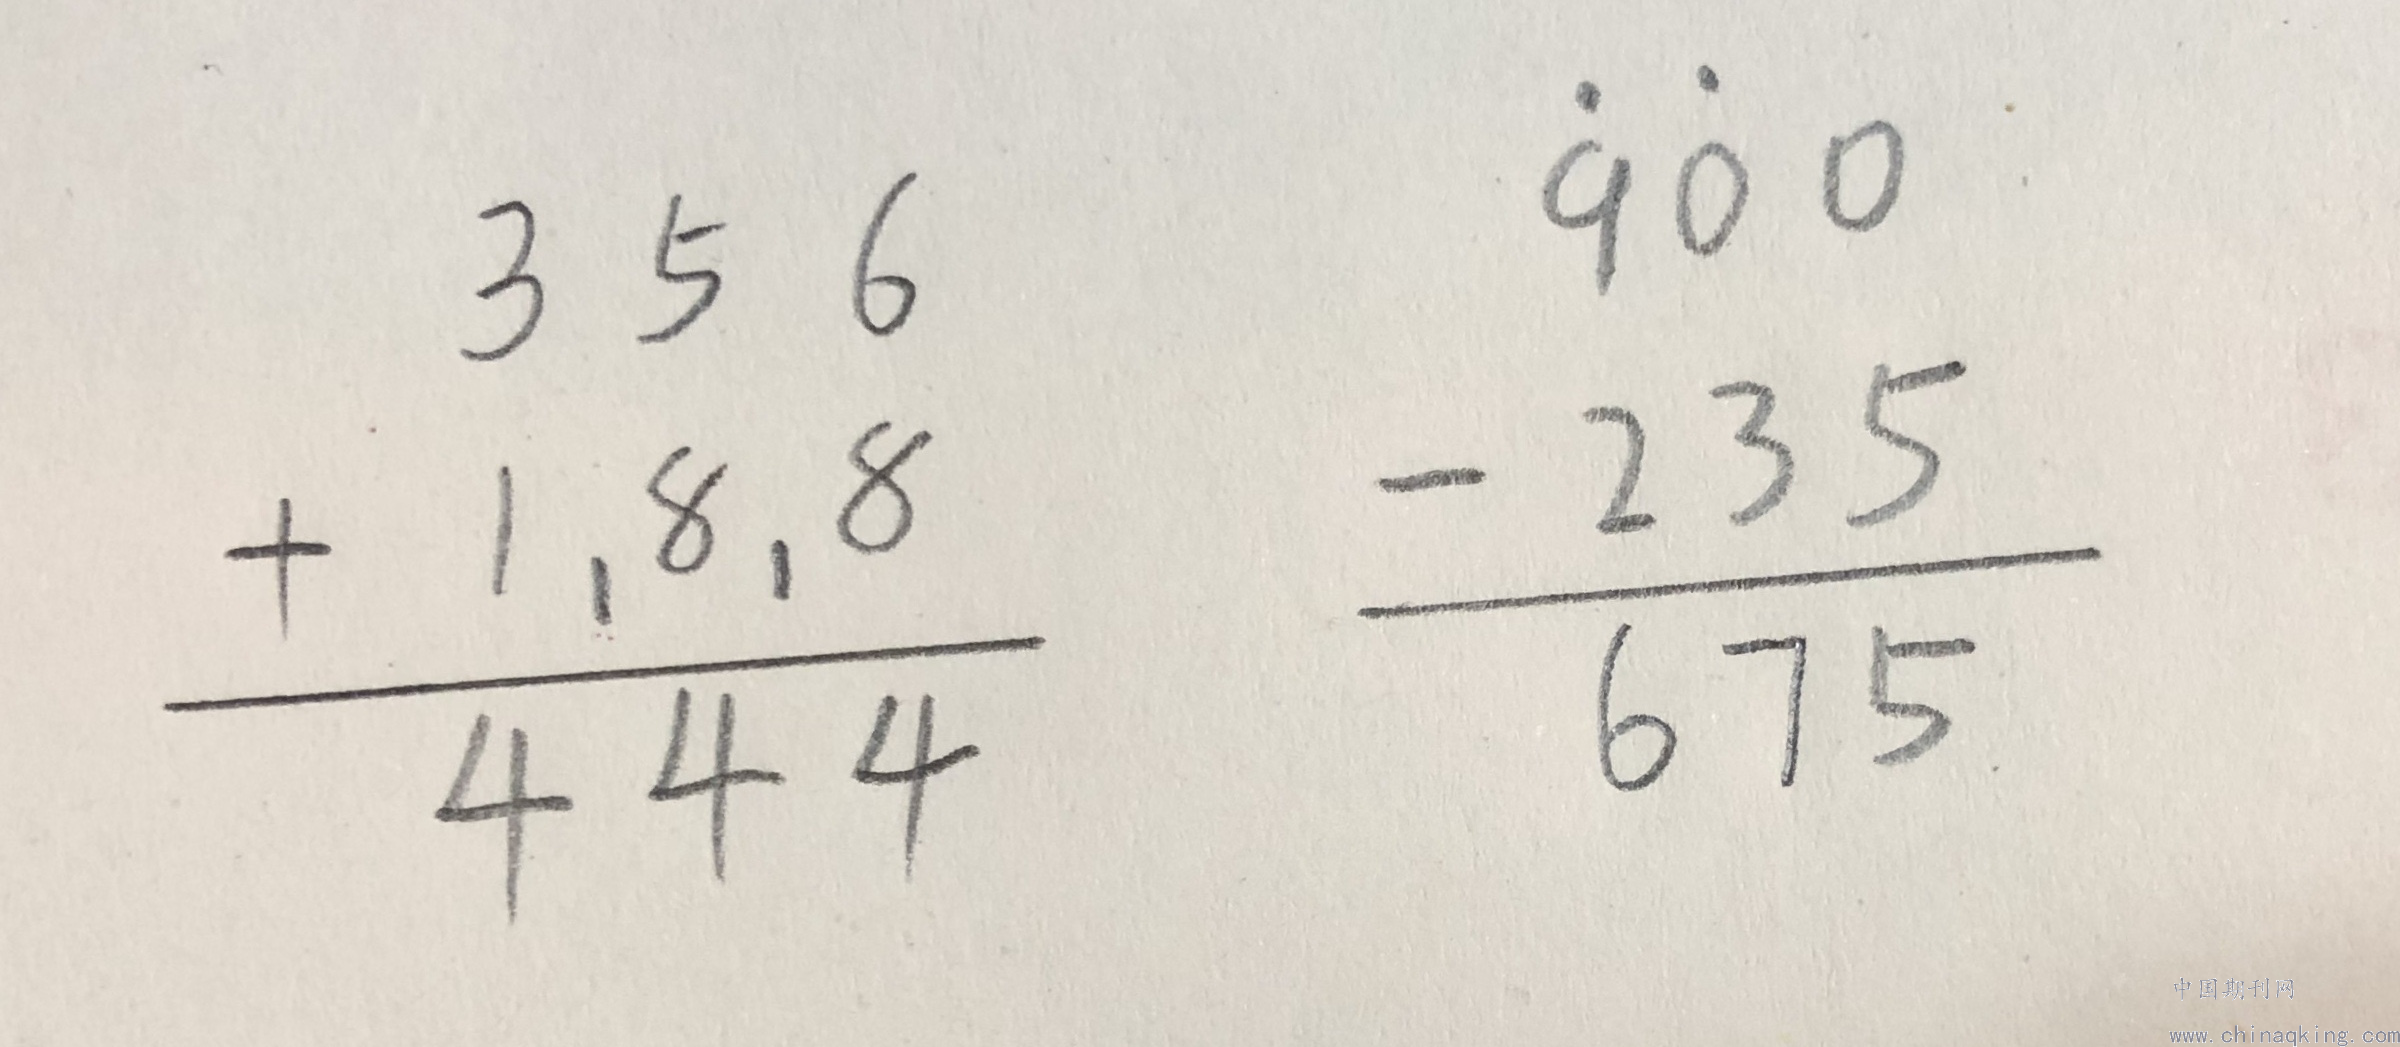 356
+ 1,8,8
444
900
- 235
675
中国期刊网
www.chinaqking.com